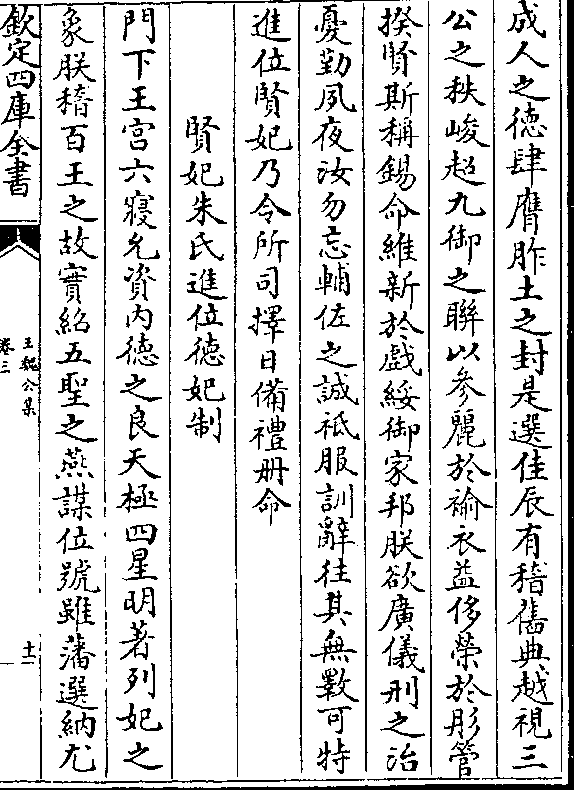 成人之徳肆膺胙土之封是選佳辰有稽儁典越視三
公之秩峻超九御之聯以參麗於褕衣益侈榮於彤管
揆賢斯稱錫命維新於戲綏御家邦朕欲廣儀刑之治
憂勤夙夜汝勿忘輔佐之誠祗服訓辭往其無斁可特
進位賢妃乃令所司擇日備禮册命
賢妃朱氏進位徳妃制
門下王宫六寢允資内徳之良天極四星明著列妃之
象朕稽百王之故實紹五聖之燕謀位號雖藩選納尤
欽定四庫全書
王魏公集
卷三
十一